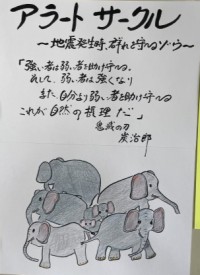 アラートサークル
～地震発生時、群れを守るゾウ～
「強い者は弱い者を助け守る。
そして、弱い者は強くなり
また自分より弱い者を助け守る
これが自然の摂理だ」
鬼滅の刃
炭治郎